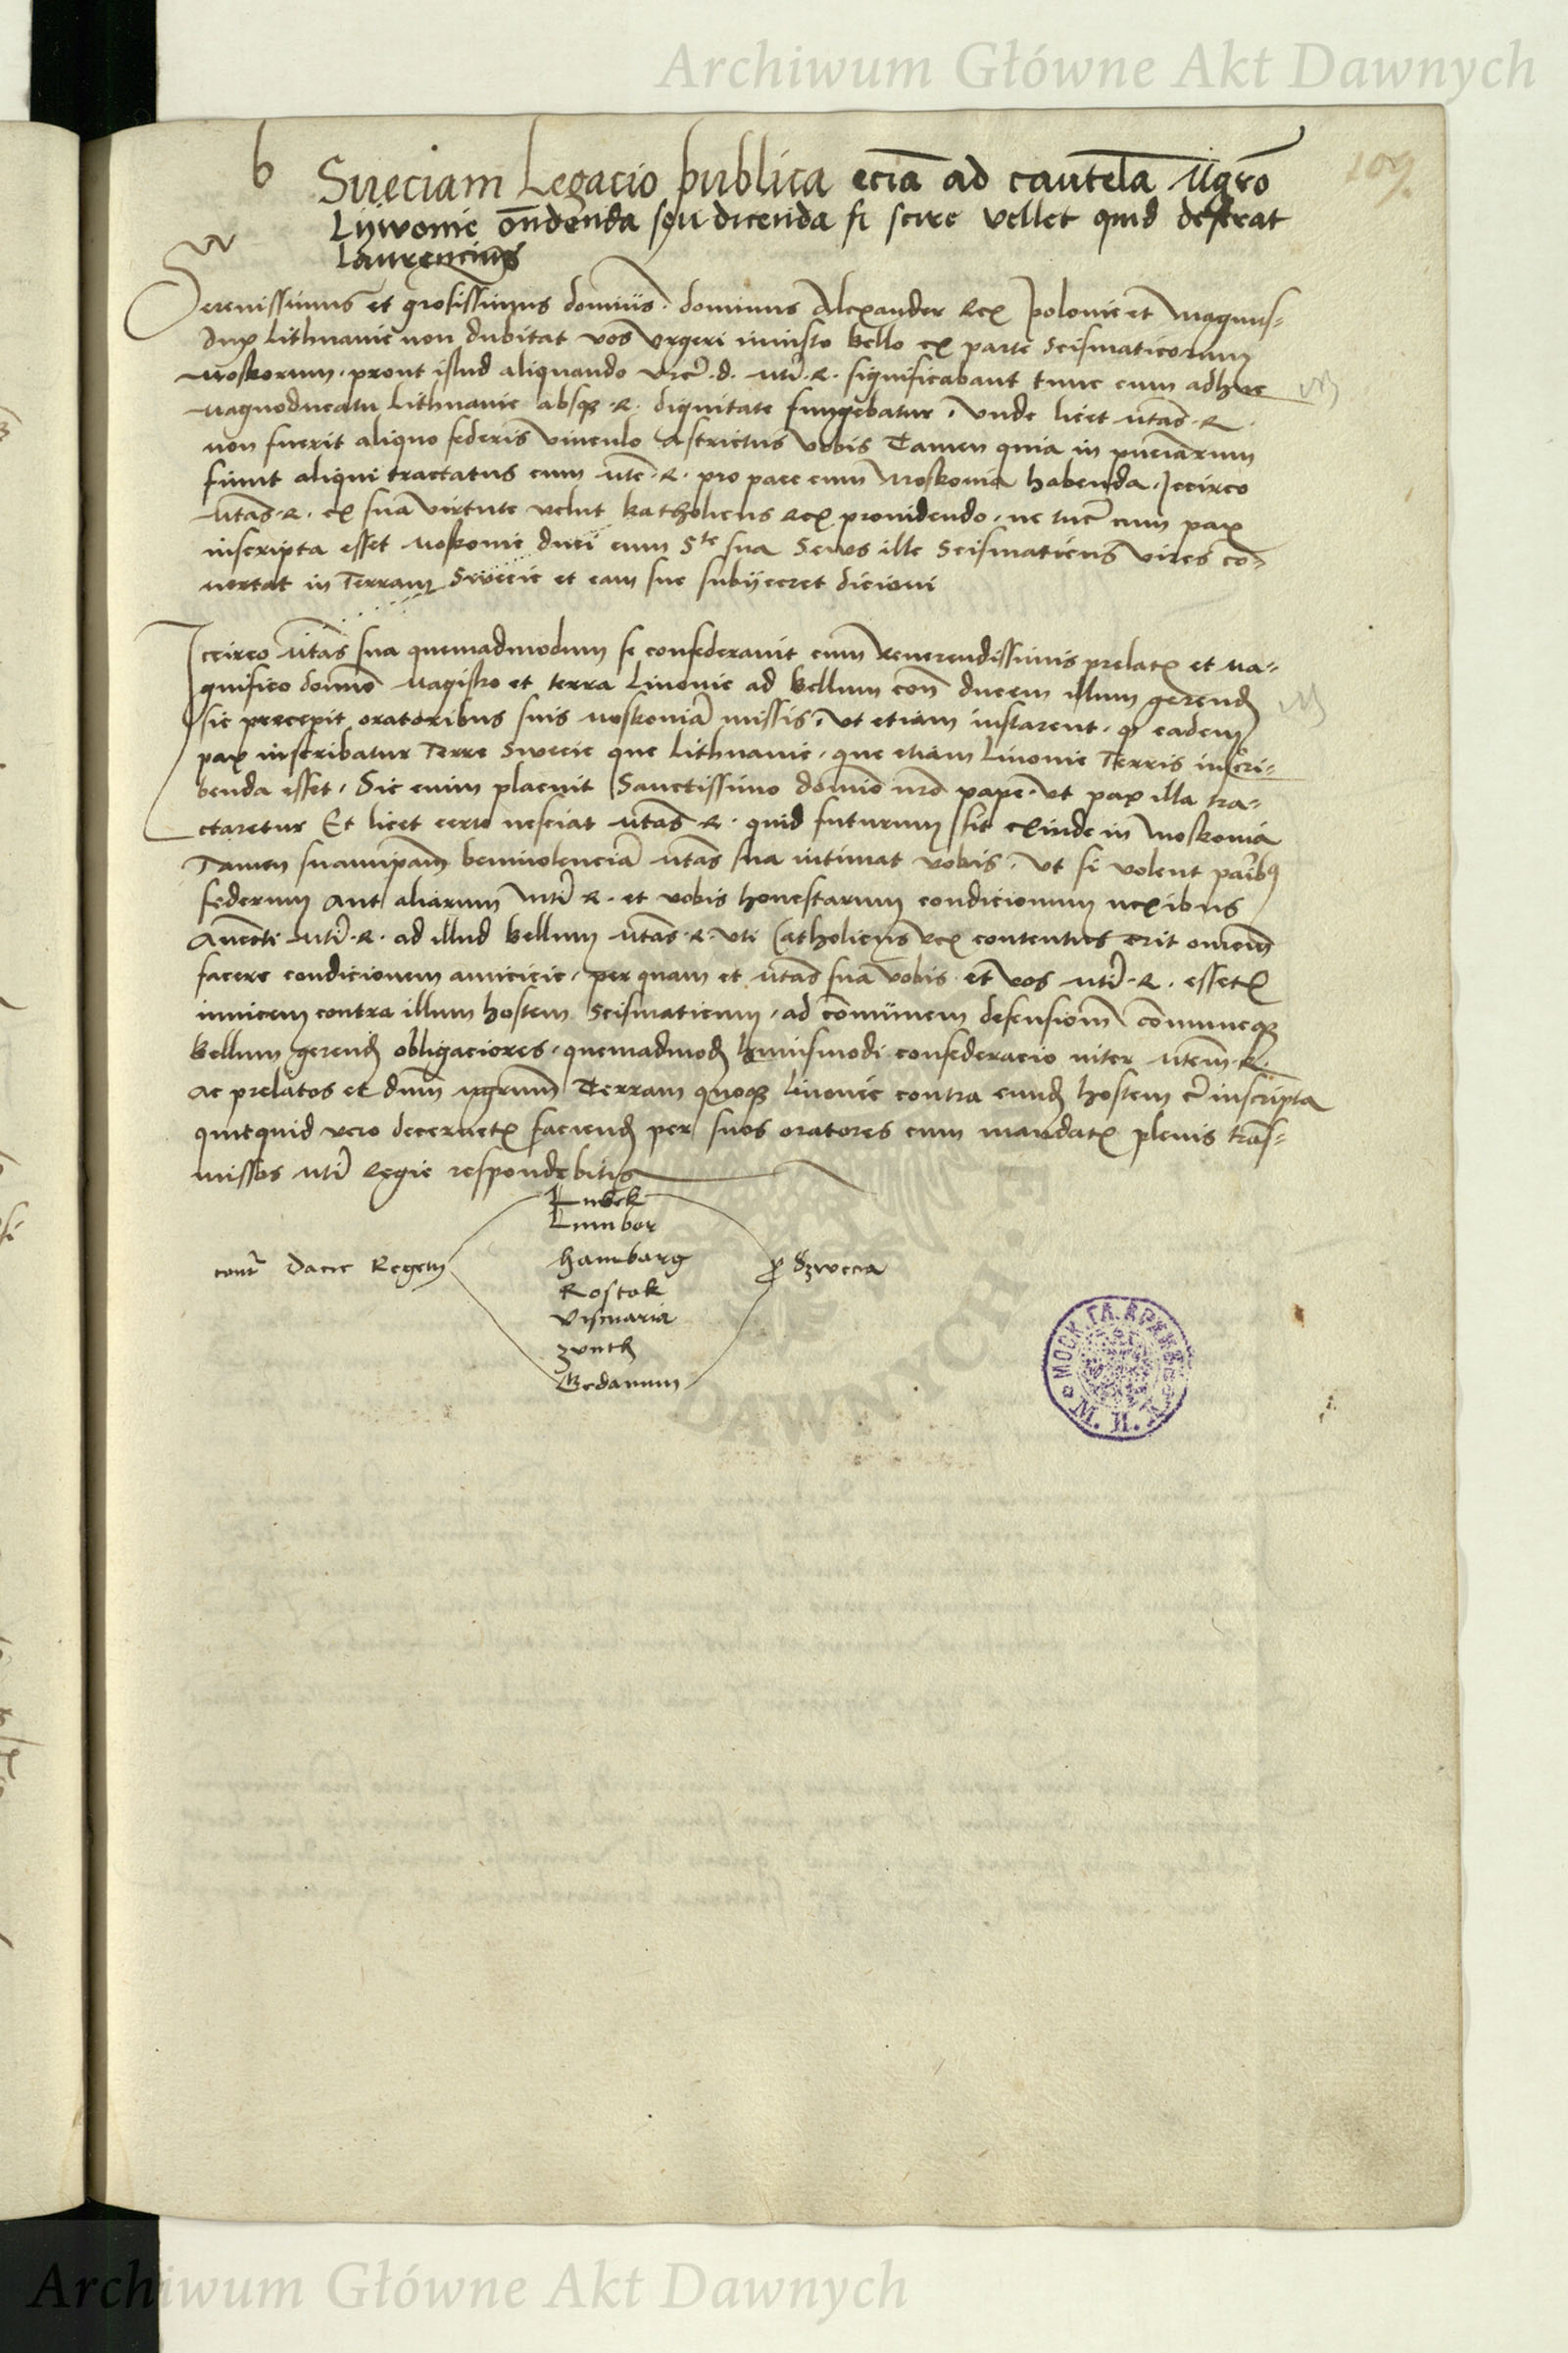 Archiwum Główne Akt Dawnych
109
b Sueciam Legacio publica eciā ad cautelā Mgrō
Lywonie ōndenda seu dicenda si scire vellet quid deferat
Laurencius
Serenissimus et grōsissimus domiīs dominus Alexander Rex polonie et Magnus
Dux Lithuanie non dubitat vos Urgeri iniusto bello ex parte Scismaticorum
Moskorum prout istud aliquando significabant tunc cum adhuc
Magnoducatu Lithuanie absque R. dignitate fungebatur. Unde licet Mtas R.
non fuerit aliquo federis vinculo Astrictus vobis Tamen quia in
fiunt aliqui tractatus cum Mte R. pro pace cum Moskouia habenda. Iccirco
Mtas R. ex sua virtute velut katholicus Rex prouidendo ne cum pax
inscripta esset Moskouie duci cum Ste sua ille Scismaticus vires cō
uertat in Terram Swecie et eam sue subijceret dicioni
Iccirco Mtas sua quemadmodum se confederauit cum Reuerendissimis prelatis et Ma-
gnifico domino Magistro et terra Liuonie ad bellum con ducem illum gerend
sic precepit oratoribus suis moskouiā missis. ut etiam instarent q eadem
pax inscribatur Terre Swecie que Lithuanie que etiam Liuonie Terris inscri-
benda esset. Sic enim placuit Sanctissimo domino nrō pape ut pax illa tra-
ctaretur Et licet certo nesciat Mtas R. quid futurum sit exinde in Moskouia
Tamen suam beniuolenciā Mtas sua intimat vobis. ut si volent
federum Aut aliarum Mti R. et vobis honestarum condicionum nexibus
Mti R. ad illud bellum Mtas R. uti Catholicus rex contentus erit
facere condicionem amicicie per quam et Mtas sua vobis et vos Mti R. essetis
inuicem contra illum hostem Scismaticum ad communem defensionem communeque
bellum gerend obligaciores quemadmod huiusmodi confederacio inter Mtem R.
Ac prelatos et dnm mgrum Terram quoque liuonie contra eund hostem inscripta
quicquid vero decernetis faciend per suos oratores cum mandatis plenis trās-
missos Mti Regie respondebitis
Lubek
Lunbor
contr Dacie Regem hamburg pro Szwecia
Rostok
Vismaria
zunth
Gedanum
МОСК. ГЛ. АРХИВ
М. И. Д.
DAWNYCH
Archiwum Główne Akt Dawnych